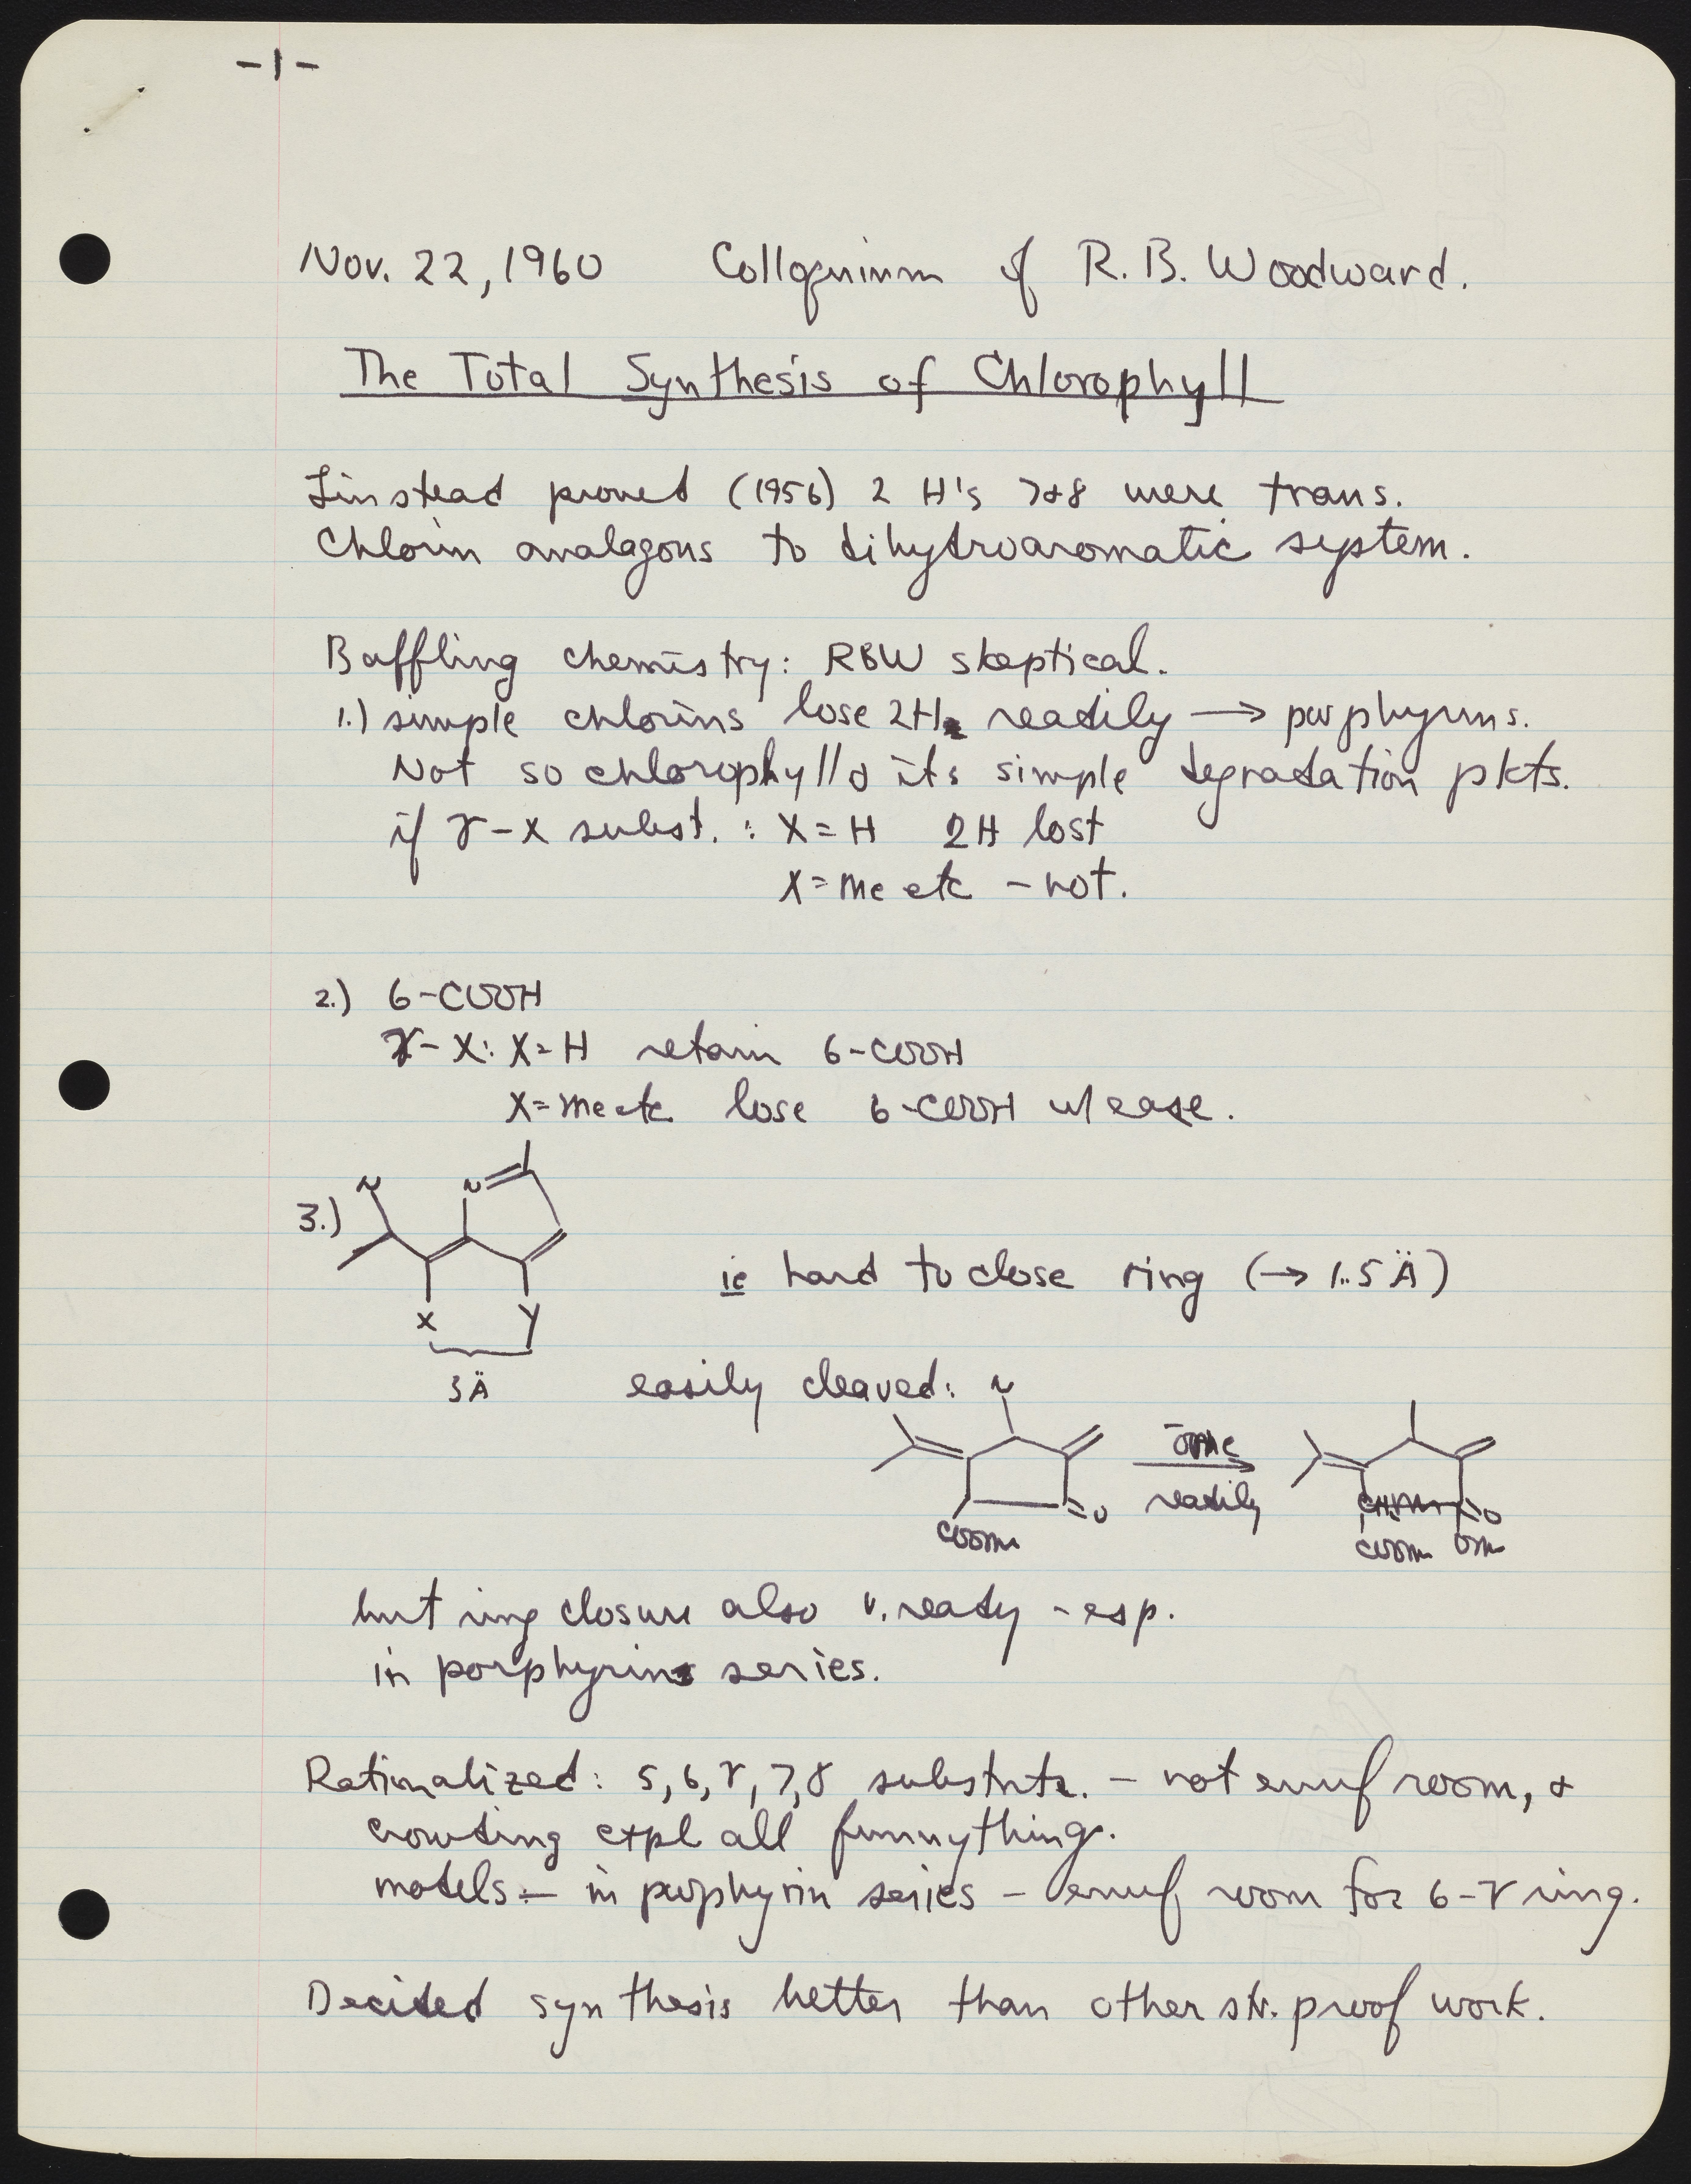 -1-
Nov. 22, 1960 Colloquium of R. B. Woodward.
The Total Synthesis of Chlorophyll
Linstead proved (1956) 2 H's 7&8 were trans.
Chlorin analagous to dihydroaromatic system.
Baffling chemistry: RBW skeptical.
1.) simple chlorins lose 2H readily → porphyrins.
Not so chlorophyll & its simple degradation pdts.
if γ-X subst. : X=H 2H lost
X=Me etc - not.
2.) 6-COOH
γ-X: X=H retain 6-COOH
X=Me etc lose 6-COOH w/ ease.
3.) N N
ie hard to close ring (→ 1.5 Å)
X Y
3Å
easily cleaved: N
-OMe
readily
O O
COOMe COOMe OMe
but ring closure also v. ready - esp.
in porphyrin series.
Rationalized: 5, 6, γ, 7, 8 substnts. - not enuf room, &
crowding expl all funny things.
models :- in porphyrin series - enuf room for 6-γ ring.
Decided synthesis better than other str. proof work.